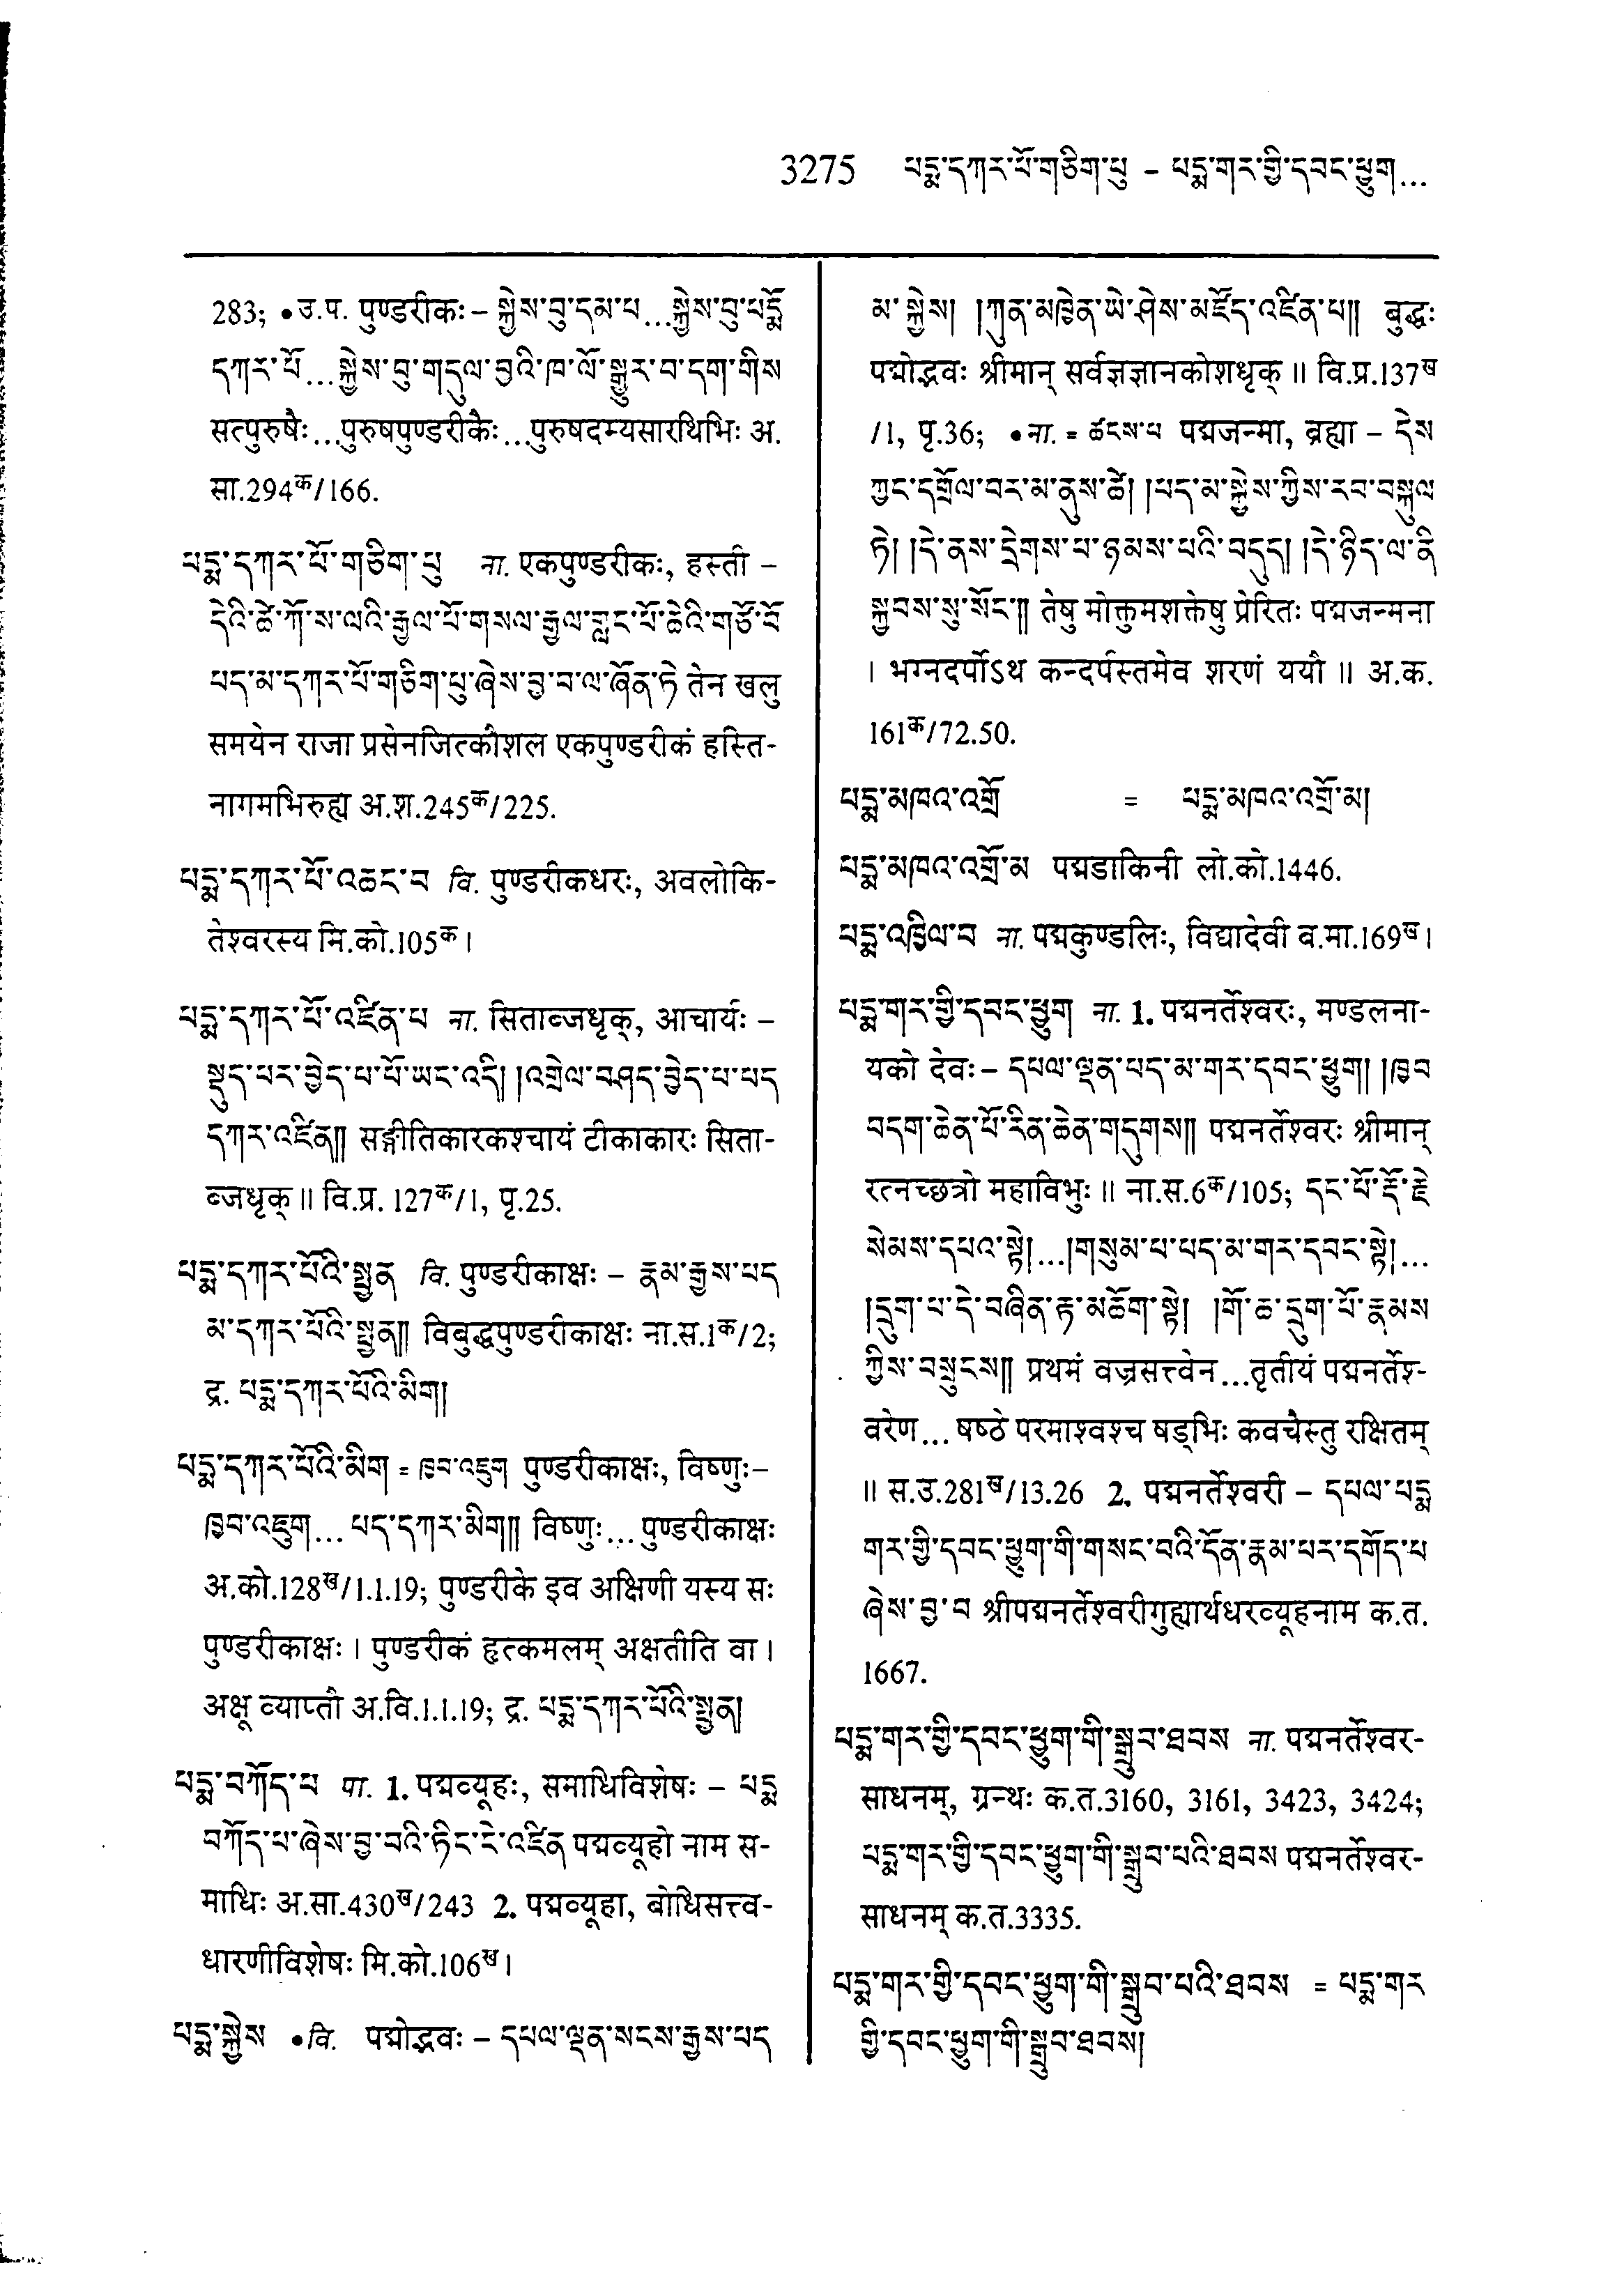 3275 པདྨ་དཀར་པོ་གཅིག་པུ – པདྨ་གར་གྱི་དབང་ཕྱུག...
283; •उ.प. पुण्डरीकः – སྐྱེས་བུ་དམ་པ...སྐྱེས་བུ་པདྨོ
དཀར་པོ...སྐྱེས་བུ་གདུལ་བྱའི་ཁ་ལོ་སྒྱུར་བ་དག་གིས
सत्पुरुषैः...पुरुषपुण्डरीकैः...पुरुषदम्यसारथिभिः अ.
सा.294क/166.
པདྨ་དཀར་པོ་གཅིག་པུ ना. एकपुण्डरीकः, हस्ती –
དེའི་ཚེ་ཀོ་ས་ལའི་རྒྱལ་པོ་གསལ་རྒྱལ་གླང་པོ་ཆེའི་གཙོ་བོ
པད་མ་དཀར་པོ་གཅིག་པུ་ཞེས་བྱ་བ་ལ་ཞོན་ཏེ तेन खलु
समयेन राजा प्रसेनजित्कौशल एकपुण्डरीकं हस्ति-
नागमभिरुह्य अ.श.245क/225.
པདྨ་དཀར་པོ་འཆང་བ वि. पुण्डरीकधरः, अवलोकि-
तेश्वरस्य मि.को.105क।
པདྨ་དཀར་པོ་འཛིན་པ ना. सिताब्जधृक्, आचार्यः –
སྡུད་པར་བྱེད་པ་པོ་ཡང་འདི། །འགྲེལ་བཤད་བྱེད་པ་པད
དཀར་འཛིན།། सङ्गीतिकारकश्चायं टीकाकारः सिता-
ब्जधृक्॥ वि.प्र. 127क/1, पृ.25.
པདྨ་དཀར་པོའི་སྤྱན वि. पुण्डरीकाक्षः – རྣམ་རྒྱས་པད
མ་དཀར་པོའི་སྤྱན།། विबुद्धपुण्डरीकाक्षः ना.स.1क/2;
द्र. པདྨ་དཀར་པོའི་མིག།
པདྨ་དཀར་པོའི་མིག = ཁྱབ་འཇུག पुण्डरीकाक्षः, विष्णुः–
ཁྱབ་འཇུག... པད་དཀར་མིག།། विष्णुः... पुण्डरीकाक्षः
अ.को.128ख/1.1.19; पुण्डरीके इव अक्षिणी यस्य सः
पुण्डरीकाक्षः। पुण्डरीकं हृत्कमलम् अक्षतीति वा।
अक्षू व्याप्तौ अ.वि.1.1.19; द्र. པདྨ་དཀར་པོའི་སྤྱན།
པདྨ་བཀོད་པ पा. 1. पद्मव्यूहः, समाधिविशेषः – པདྨ
བཀོད་པ་ཞེས་བྱ་བའི་ཏིང་ངེ་འཛིན पद्मव्यूहो नाम स-
माधिः अ.सा.430ख/243 2. पद्मव्यूहा, बोधिसत्त्व-
धारणीविशेषः मि.को.106ख।
པདྨ་སྐྱེས •वि. पद्मोद्भवः – དཔལ་ལྡན་སངས་རྒྱས་པད
མ་སྐྱེས། །ཀུན་མཁྱེན་ཡེ་ཤེས་མཛོད་འཛིན་པ།། बुद्धः
पद्मोद्भवः श्रीमान् सर्वज्ञज्ञानकोशधृक्॥ वि.प्र.137ख
/1, पृ.36; •ना. = ཚངས་པ पद्मजन्मा, ब्रह्मा – དེས
ཀྱང་དགྲོལ་བར་མ་ནུས་ཚེ། །པད་མ་སྐྱེས་ཀྱིས་རབ་བསྐུལ
ཏེ། །དེ་ནས་དྲེགས་པ་ཉམས་པའི་བདུད། །དེ་ཉིད་ལ་ནི
སྐྱབས་སུ་སོང་།། तेषु मोक्तुमशक्तेषु प्रेरितः पद्मजन्मना
। भग्नदर्पोऽथ कन्दर्पस्तमेव शरणं ययौ॥ अ.क.
161क/72.50.
པདྨ་མཁའ་འགྲོ = པདྨ་མཁའ་འགྲོ་མ།
པདྨ་མཁའ་འགྲོ་མ पद्मडाकिनी लो.को.1446.
པདྨ་འཁྱིལ་བ ना. पद्मकुण्डलिः, विद्यादेवी व.मा.169ख।
པདྨ་གར་གྱི་དབང་ཕྱུག ना. 1. पद्मनर्तेश्वरः, मण्डलना-
यको देवः – དཔལ་ལྡན་པད་མ་གར་དབང་ཕྱུག། །ཁྱབ
བདག་ཆེན་པོ་རིན་ཆེན་གདུགས།། पद्मनर्तेश्वरः श्रीमान्
रत्नच्छत्रो महाविभुः॥ ना.स.6क/105; དང་པོ་རྡོ་རྗེ
སེམས་དཔའ་སྟེ།...།གསུམ་པ་པད་མ་གར་དབང་སྟེ།...
།དྲུག་པ་དེ་བཞིན་རྟ་མཆོག་སྟེ། །གོ་ཆ་དྲུག་པོ་རྣམས
ཀྱིས་བསྲུངས།། प्रथमं वज्रसत्त्वेन...तृतीयं पद्मनर्तेश्-
वरेण... षष्ठे परमाश्वश्च षड्भिः कवचैस्तु रक्षितम्
॥ स.उ.281ख/13.26 2. पद्मनर्तेश्वरी – དཔལ་པདྨ
གར་གྱི་དབང་ཕྱུག་གི་གསང་བའི་དོན་རྣམ་པར་དགོད་པ
ཞེས་བྱ་བ श्रीपद्मनर्तेश्वरीगुह्यार्थधरव्यूहनाम क.त.
1667.
པདྨ་གར་གྱི་དབང་ཕྱུག་གི་སྒྲུབ་ཐབས ना. पद्मनर्तेश्वर-
साधनम्, ग्रन्थः क.त.3160, 3161, 3423, 3424;
པདྨ་གར་གྱི་དབང་ཕྱུག་གི་སྒྲུབ་པའི་ཐབས पद्मनर्तेश्वर-
साधनम् क.त.3335.
པདྨ་གར་གྱི་དབང་ཕྱུག་གི་སྒྲུབ་པའི་ཐབས = པདྨ་གར
གྱི་དབང་ཕྱུག་གི་སྒྲུབ་ཐབས།